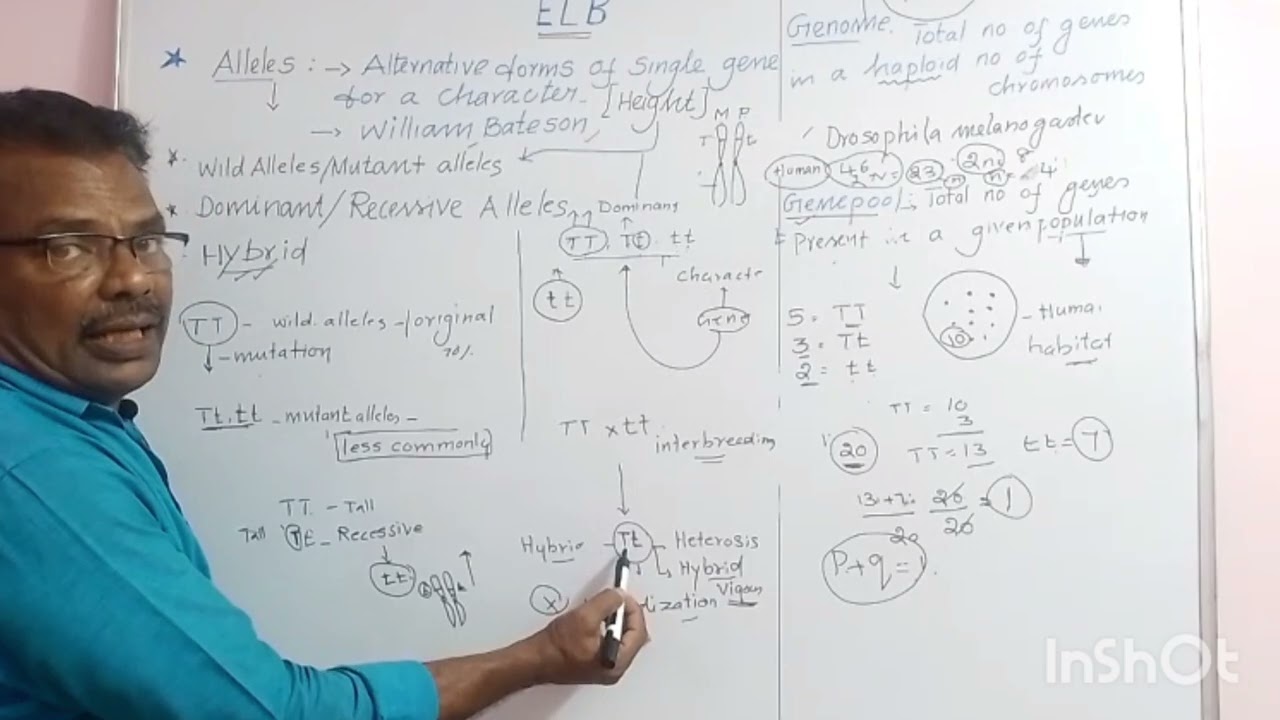 ELB
* Alleles : → Alternative forms of single gene
for a character. [Height]
→ William Bateson,
* Wild Alleles/Mutant alleles
* Dominant/Recessive Alleles,
Hybrid
TT - wild alleles -/original
70%
- mutation
Tt, tt - mutant alleles -
less commonly
TT - Tall
Tall Tt - Recessive
tt
M P
T t
Dominang
TT, Tt, tt
tt
characte
Geng
TT x tt
interbreeding
Hybrid - Tt - Heterosis
Hybrid
Vigour
x
dization
Genome. Total no of genes
in a haploid no of
chromosomes
Drosophila melanogaster
Human 46 2n = 23 2n 8
n n = 4
Genepool :- Total no of genes
Present in a given population
5 = TT
3 = Tt
2 = tt
10
- Huma.
habitat
TT = 10
3
20 TT = 13 tt = 7
13+7 20 = 1
20 20
P+q = 1.
InShOt